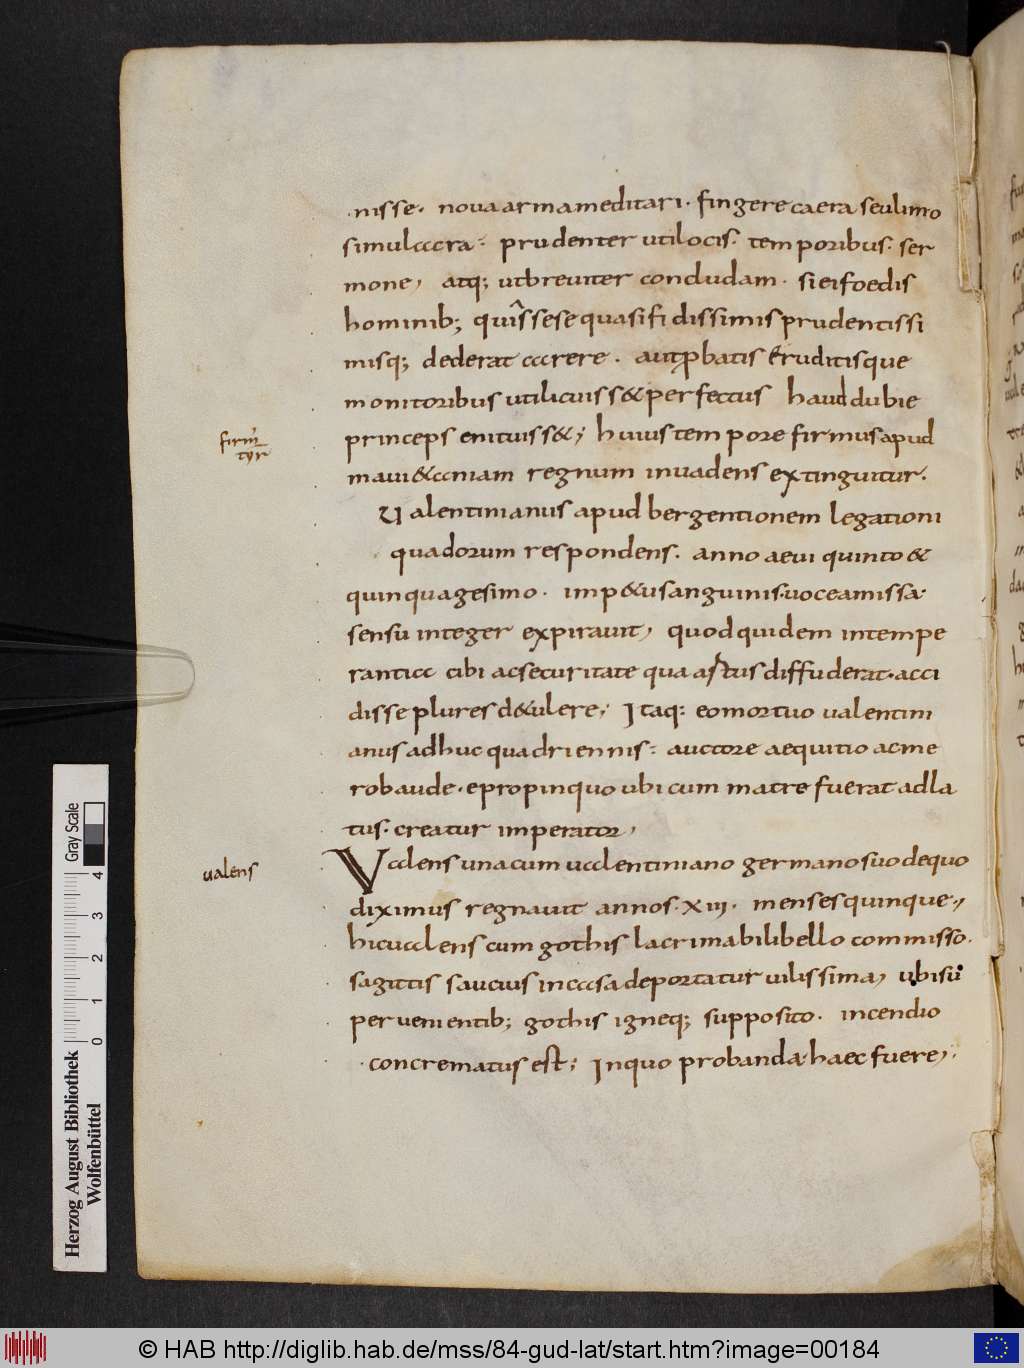 nisse. nova arma meditari. fingere caera seu limo
simulacra. prudenter uti locis. temporibus. ser
mone, atq; ut breviter concludam. si ei foedis
hominib; quîs sese quasi fidissimis prudentissi
misq; dederat carere. aut ꝓbatis eruditisque
monitoribus uti licuiss& perfectus haud dubie
princeps enituiss&; huius tempore firmus apud
firm' tyr̄
maui&aniam regnum invadens extinguitur.
Ualentinianus apud bergentionem legationi
quadorum respondens. anno aevi quinto &
quinquagesimo. imp&u sanguinis. voce amissa.
sensu integer expiravit, quod quidem intempe
rantia cibi ac securitate qua astus diffuderat. acci
disse plures d&ulere; Itaq: eo mortuo valentini
anus adhuc quadriennis: auctore aequitio ac me
robaude. e propinquo ubi cum matre fuerat adla
tus. creatur imperator,
valens
Valens una cum valentiniano germano suo de quo
diximus regnavit annos. XIII. menses quinque,,
hic valens cum gothis lacrimabili bello commisso.
sagittis saucius in casa deportatur vilissima, ubi su
pervenientib; gothis igneq; supposito. incendio
concrematus est; In quo probanda haec fuere,
Herzog August Bibliothek
Wolfenbüttel
0 1 2 3 4
Gray Scale
© HAB http://diglib.hab.de/mss/84-gud-lat/start.htm?image=00184